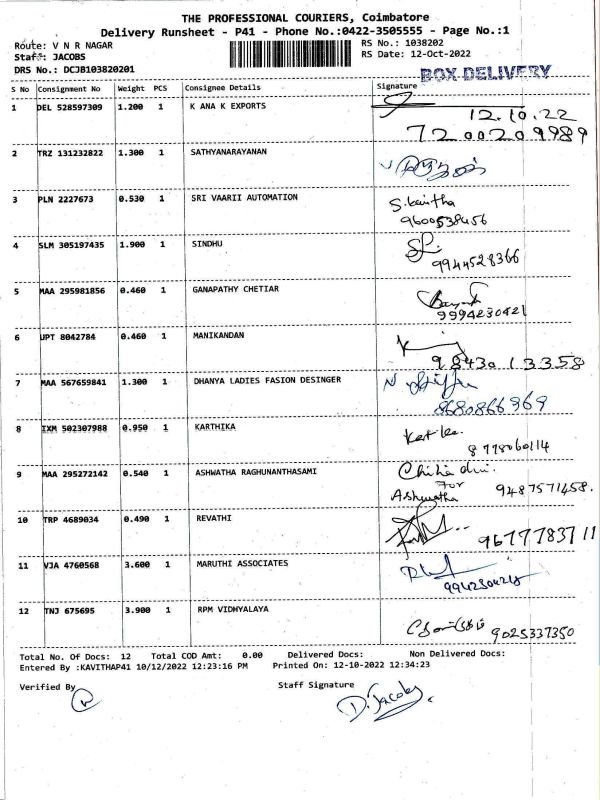 THE PROFESSIONAL COURIERS, Coimbatore
Delivery Runsheet - P41 - Phone No.:0422-3505555 - Page No.:1
Route: V N R NAGAR RS No.: 1038202
Staff: JACOBS RS Date: 12-Oct-2022
DRS No.: DCJB103820201 BOX DELIVERY
S No Consignment No Weight PCS Consignee Details Signature
1 DEL 528597309 1.200 1 K ANA K EXPORTS 12.10.22
7200209989
2 TRZ 131232822 1.300 1 SATHYANARAYANAN
3 PLN 2227673 0.530 1 SRI VAARII AUTOMATION S.Kavitha
9600538456
4 SLM 305197435 1.900 1 SINDHU
9944528366
5 MAA 295981856 0.460 1 GANAPATHY CHETIAR
9994230421
6 UPT 8042784 0.460 1 MANIKANDAN
9843013358
7 MAA 567659841 1.300 1 DHANYA LADIES FASION DESINGER
8680866969
8 IXM 502307988 0.950 1 KARTHIKA
8778060114
9 MAA 295272142 0.540 1 ASHWATHA RAGHUNANTHASAMI
For
Ashwatha 9487571458.
10 TRP 4689034 0.490 1 REVATHI
9677783711
11 VJA 4760568 3.600 1 MARUTHI ASSOCIATES
9942504218
12 TNJ 675695 3.900 1 RPM VIDHYALAYA
9025337350
Total No. Of Docs: 12 Total COD Amt: 0.00 Delivered Docs: Non Delivered Docs:
Entered By :KAVITHAP41 10/12/2022 12:23:16 PM Printed On: 12-10-2022 12:34:23
Verified By Staff Signature
D. Jacobs